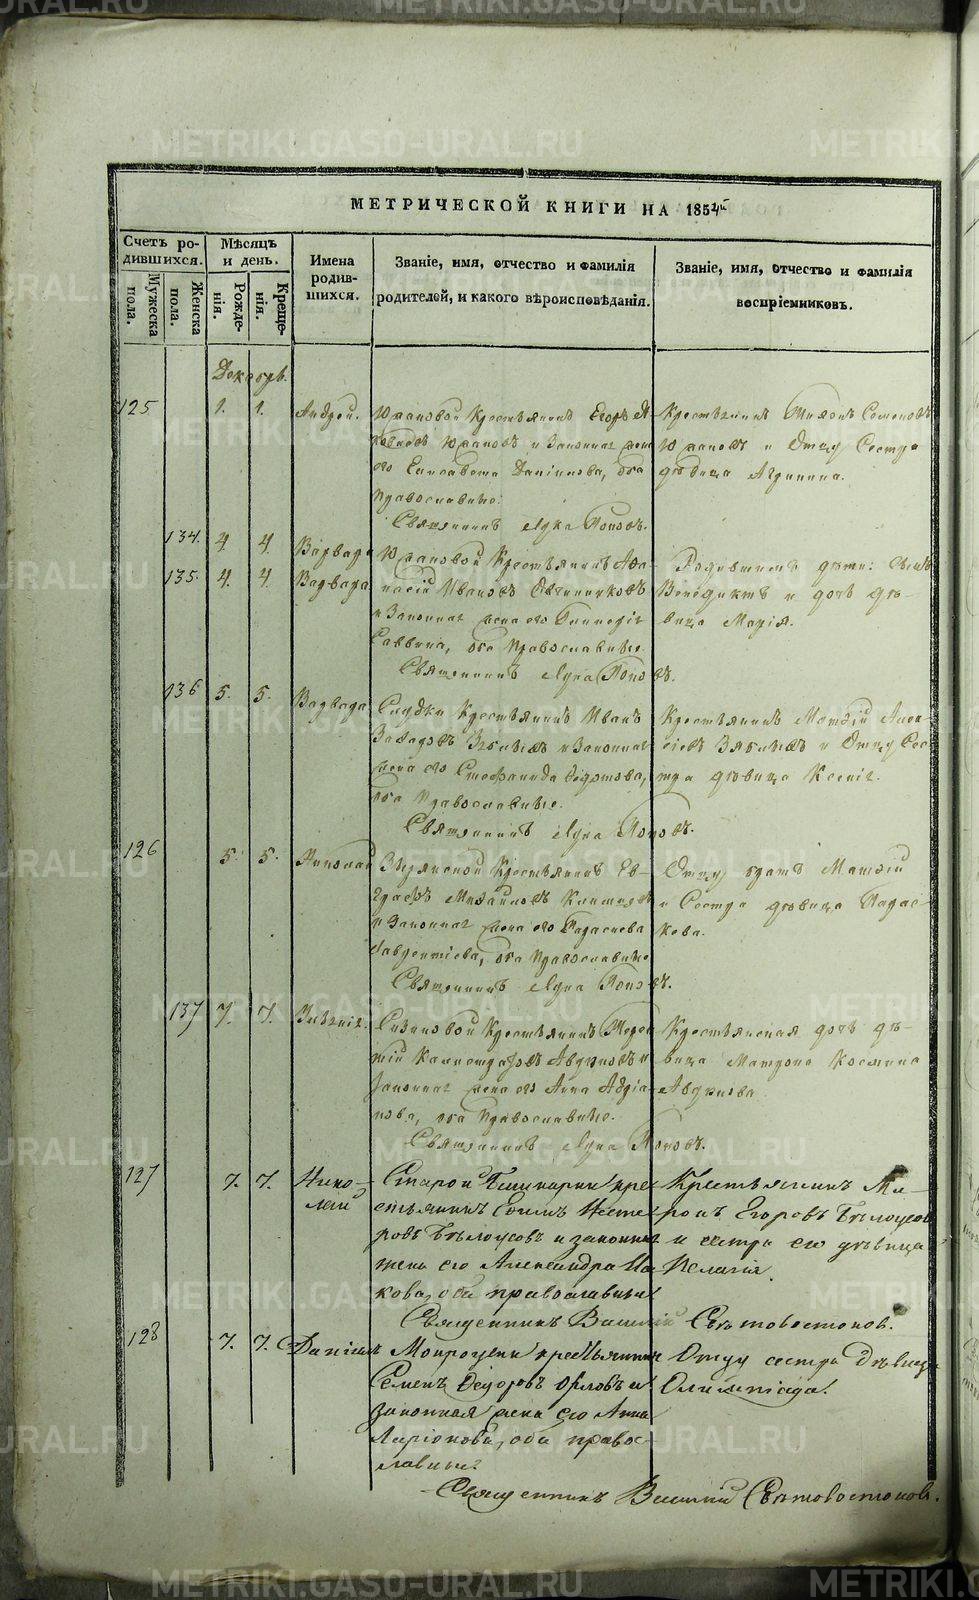 METRIKI.GASO-URAL.RU
МЕТРИЧЕСКОЙ КНИГИ НА 1854й
Счетъ ро-
дившихся.
Мужеска
пола.
Женска
пола.
Мѣсяцъ
и день.
Рожде-
нія.
Креще-
нія.
Имена
родив-
шихся.
Званіе, имя, отчество и фамилія
родителей, и какого вѣроисповѣданія.
Званіе, имя, отчество и фамилія
воспріемниковъ.
Декабрь.
125 1. 1. Андрей.
Крестьянинъ Егоръ
и законная жена
его Елисавета Даніилова, оба
православные.
Священникъ Лука Поповъ.
Крестьянинъ Тихонъ Семеновъ
и Отцу Сестра
дѣвица Агрипина.
134. 4. 4. Варвара
135. 4. 4. Варвара
Крестьянинъ Афа-
насій Ивановъ Овчинниковъ
и законная жена его
Саввина, оба православные.
Священникъ Лука Поповъ.
Родившимъ дѣти: сынъ
Венедиктъ и дочь дѣ-
вица Марія.
136 5. 5. Варвара
Слудки Крестьянинъ Иванъ
Захаровъ и законная
жена его Стефанида Федотова,
оба православные.
Священникъ Лука Поповъ.
Крестьянинъ Матвѣй Алек-
сіевъ и Отцу Сес-
тра дѣвица Ксенія.
126 5. 5. Николай
Крестьянинъ Ев-
графъ Михайловъ
и законная жена его Парасцева
Лаврентіева, оба православные
Священникъ Лука Поповъ.
Отцу братъ Матвѣй
и Сестра дѣвица Парас-
кева.
137 7. 7. Евгенія.
Сизиковой Крестьянинъ Терен-
тій Калистратовъ Авдюковъ и
законная жена его Анна Андріа-
нова, оба православные.
Священникъ Лука Поповъ.
Крестьянская дочь дѣ-
вица Матрона Космина
Авдюкова
127 7. 7. Нико-
лай
Старой кре-
стьянинъ Ефимъ Несте-
ровъ Бѣлоусовъ и законная
жена его Александра
кова, оба православные
Священникъ Василій Свѣтовостоковъ.
Крестьянинъ Ми-
ронъ Егоровъ Бѣлоусовъ
и сестра его дѣвица
Пелагія.
128 7. 7. Даніилъ
Мокроуски крестьянинъ
Семенъ Федоровъ Орловъ и
законная жена его Анна
Ларіонова, оба право-
славные.
Священникъ Василій Свѣтовостоковъ.
Отцу сестра дѣвица
Олимпіада.